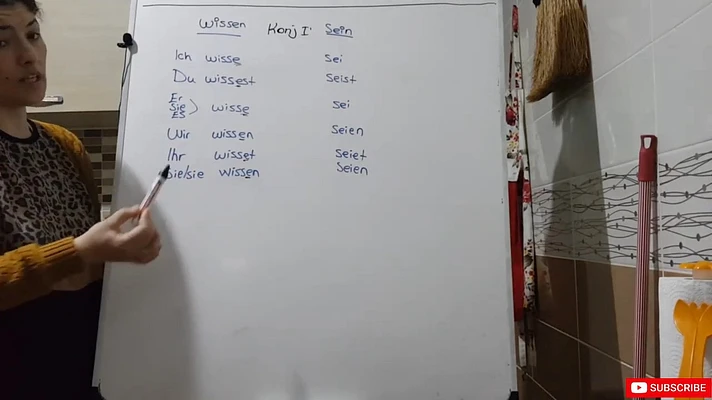 Wissen Konj I' Sein
Ich wisse sei
Du wissest seist
Er
Sie wisse sei
Es
Wir wissen seien
Ihr wisset seiet
Sie/sie wissen seien
SUBSCRIBE